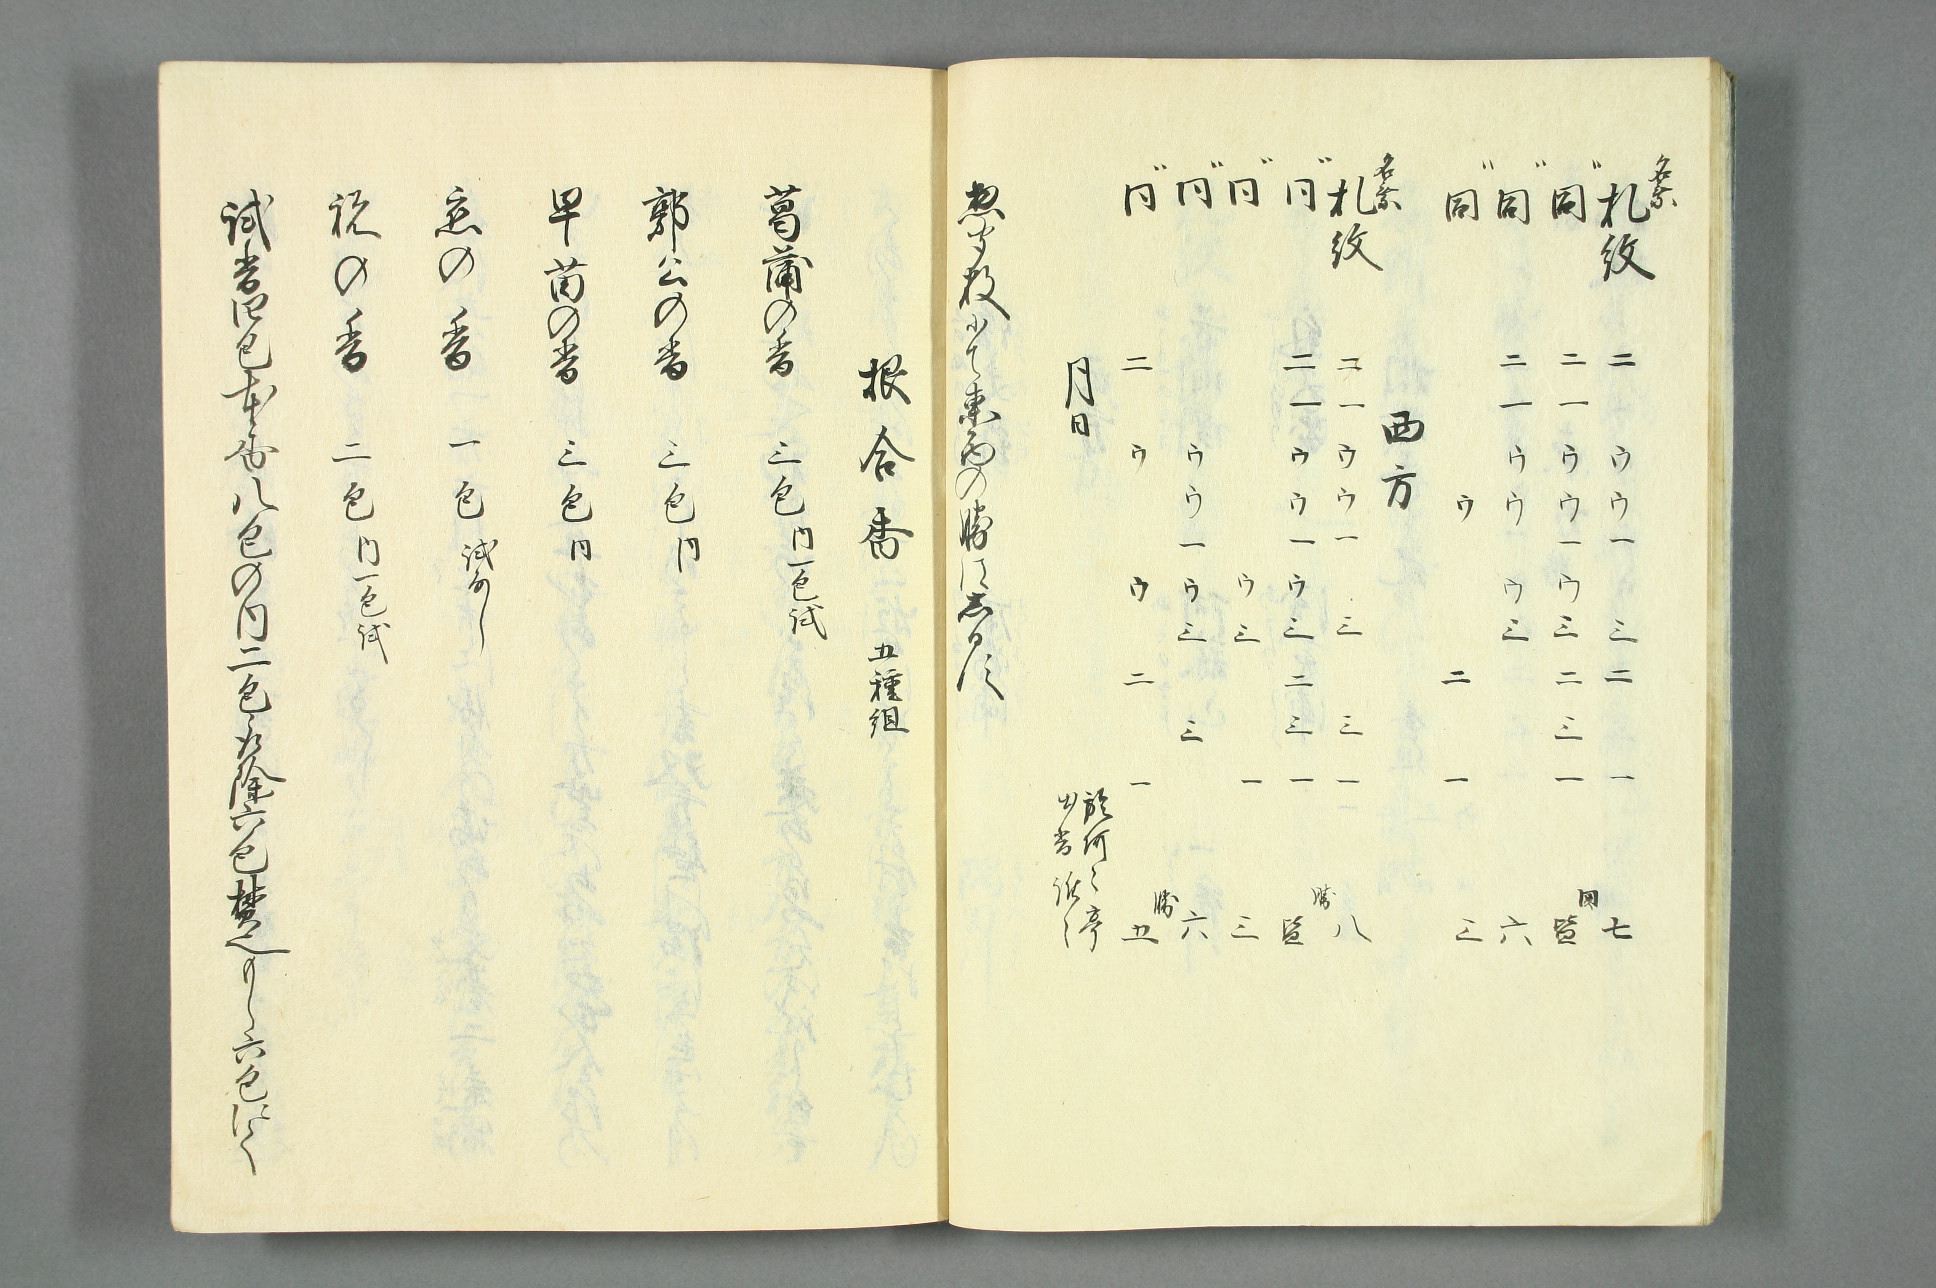 名乗 札紋 二 ウ ウ 一 三 二 一 七
〃 同 二 一 ウ ウ 一 ウ 三 二 三 一 皆 図
〃 同 二 一 ウ ウ ウ 三 六
〃 同 ウ 二 一 三
西方
名乗 札紋 二 一 ウ ウ 一 三 三 一 八 勝
〃 同 二 一 ウ ウ 一 ウ 三 二 三 一 皆
〃 同 ウ 三 一 三
〃 同 ウ ウ 一 ウ 三 三 六
〃 同 二 ウ ウ 二 一 五 勝
月日
於何々亭
出香 誰々
惣聞数にて東西の勝をしるす
根合香 五種組
菖蒲の香 三包 内一包試
郭公の香 三包 同
早苗の香 三包 同
恋の香 一包 試なし
祝の香 二包 内一包試
試香四包本香八包の内二包取除六包焚へし六包にて